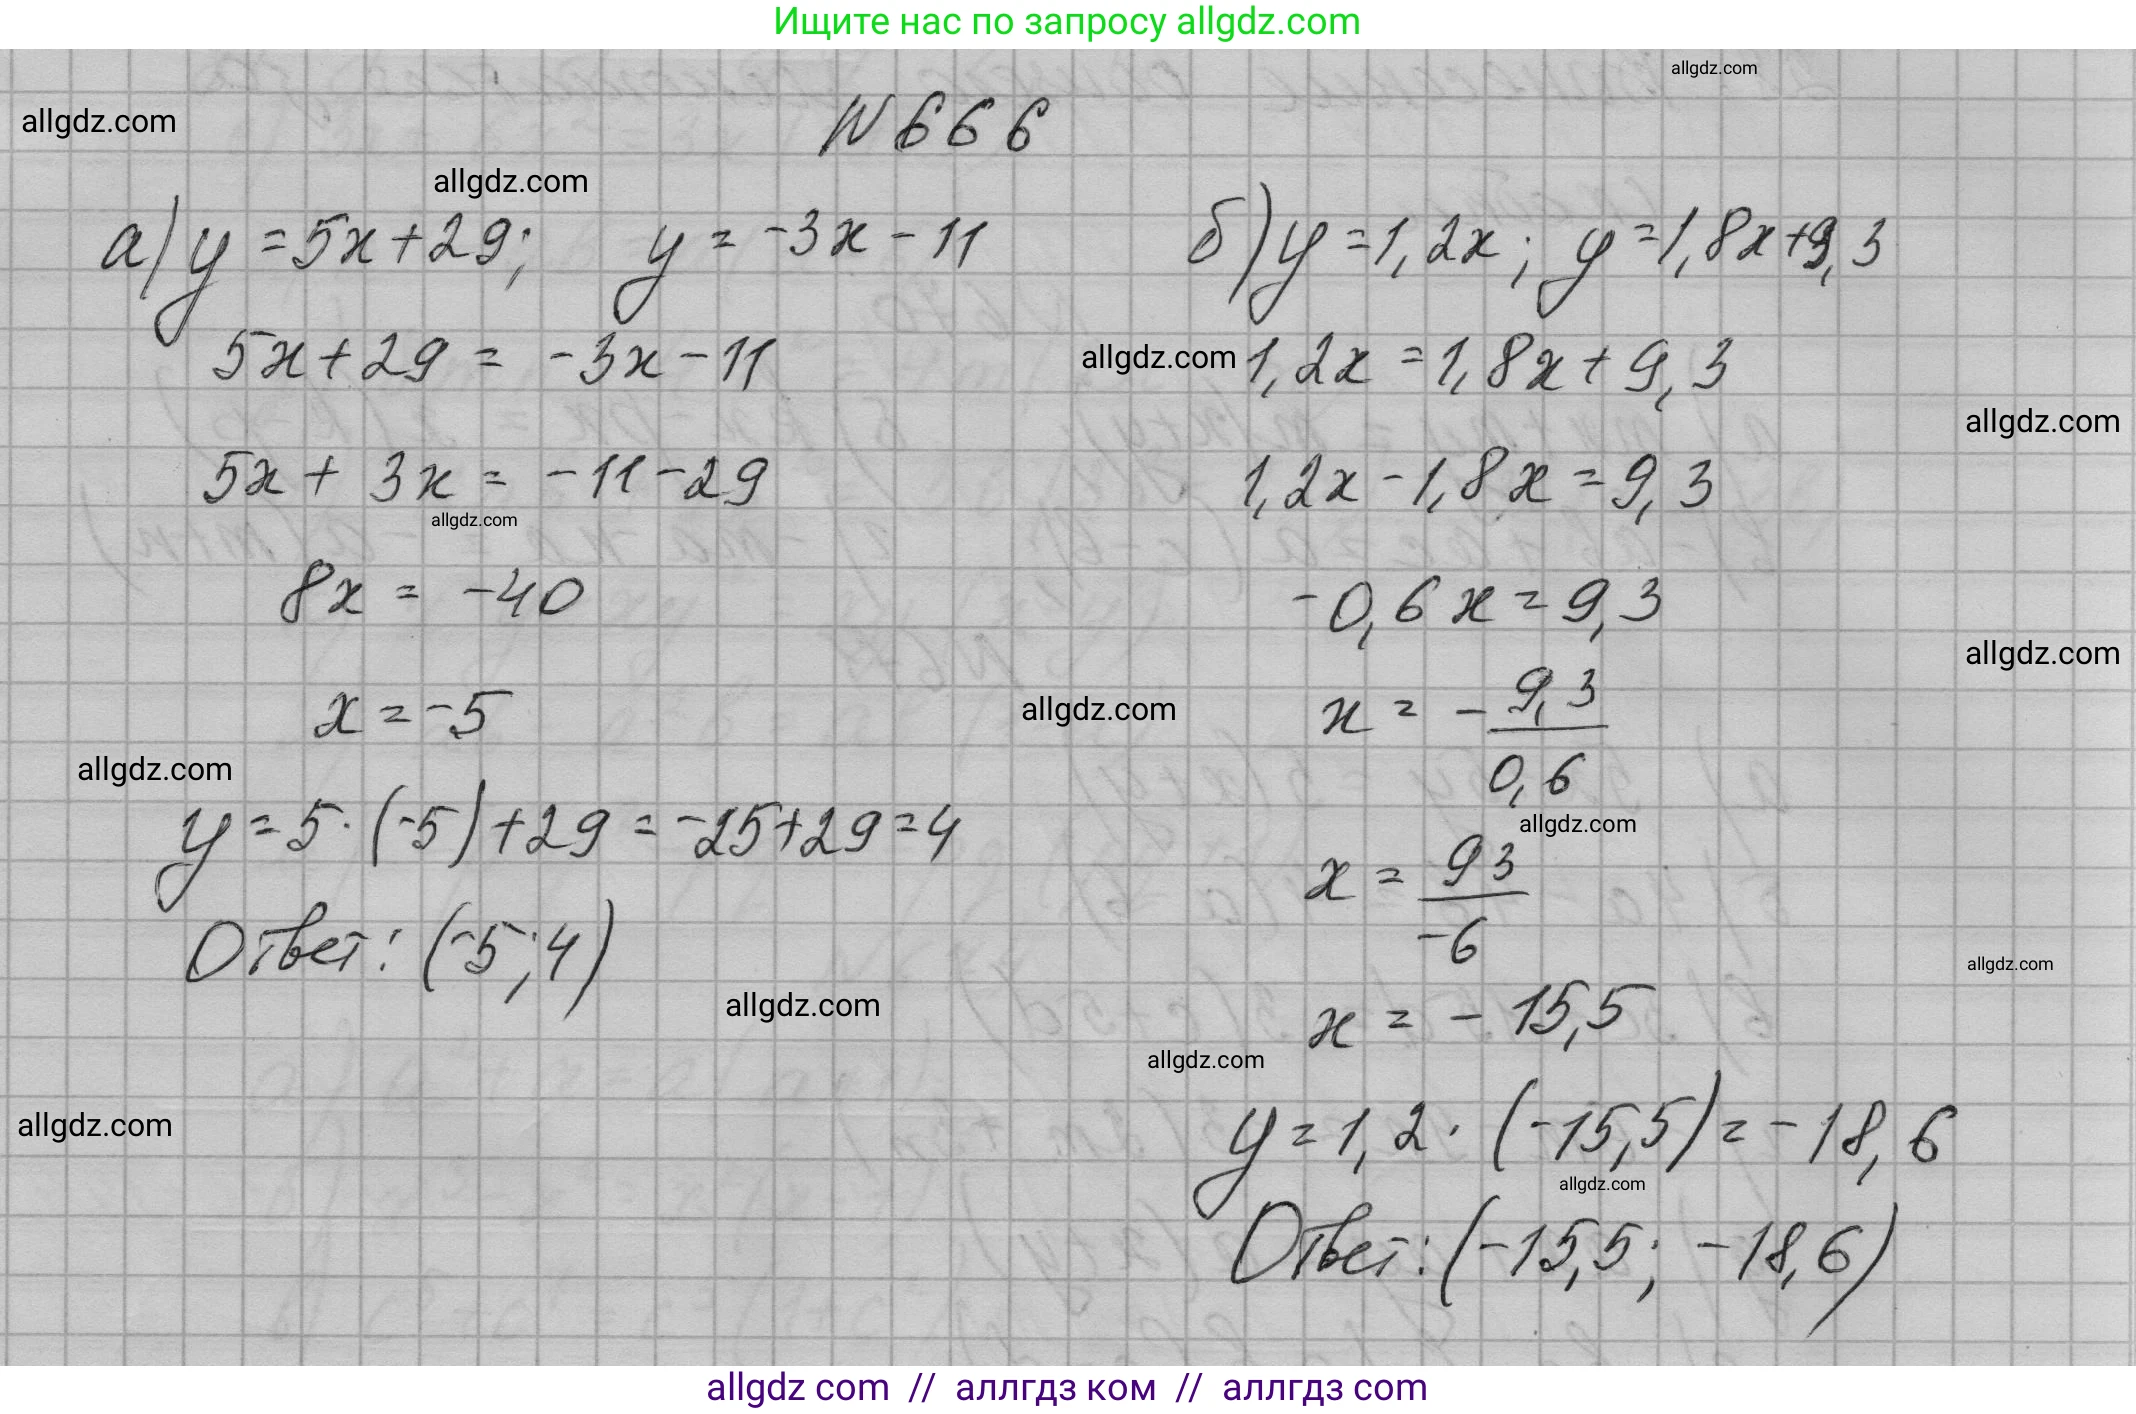 Ищите нас по запросу allgdz.com
allgdz.com
allgdz.com
N 666
allgdz.com
а) y = 5x + 29; y = -3x - 11
5x + 29 = -3x - 11
5x + 3x = -11 - 29
allgdz.com
8x = -40
x = -5
allgdz.com
y = 5 · (-5) + 29 = -25 + 29 = 4
Ответ: (-5; 4)
allgdz.com
allgdz.com
б) y = 1,2x; y = 1,8x + 9,3
allgdz.com
1,2x = 1,8x + 9,3
allgdz.com
1,2x - 1,8x = 9,3
-0,6x = 9,3
allgdz.com
x = - 9,3 / 0,6
allgdz.com
allgdz.com
x = 93 / -6
allgdz.com
x = - 15,5
allgdz.com
y = 1,2 · (-15,5) = -18,6
allgdz.com
Ответ: (-15,5; -18,6)
allgdz com // аллгдз ком // аллгдз com